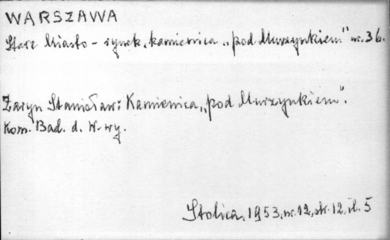 WARSZAWA
Stare Miasto - rynek, kamienica „pod Murzynkiem" nr. 36.
Żaryn Stanisław: Kamienica „pod Murzynkiem".
Kom. Bad. d. W-wy.
Stolica, 1953, nr. 12, str. 12, il. 5